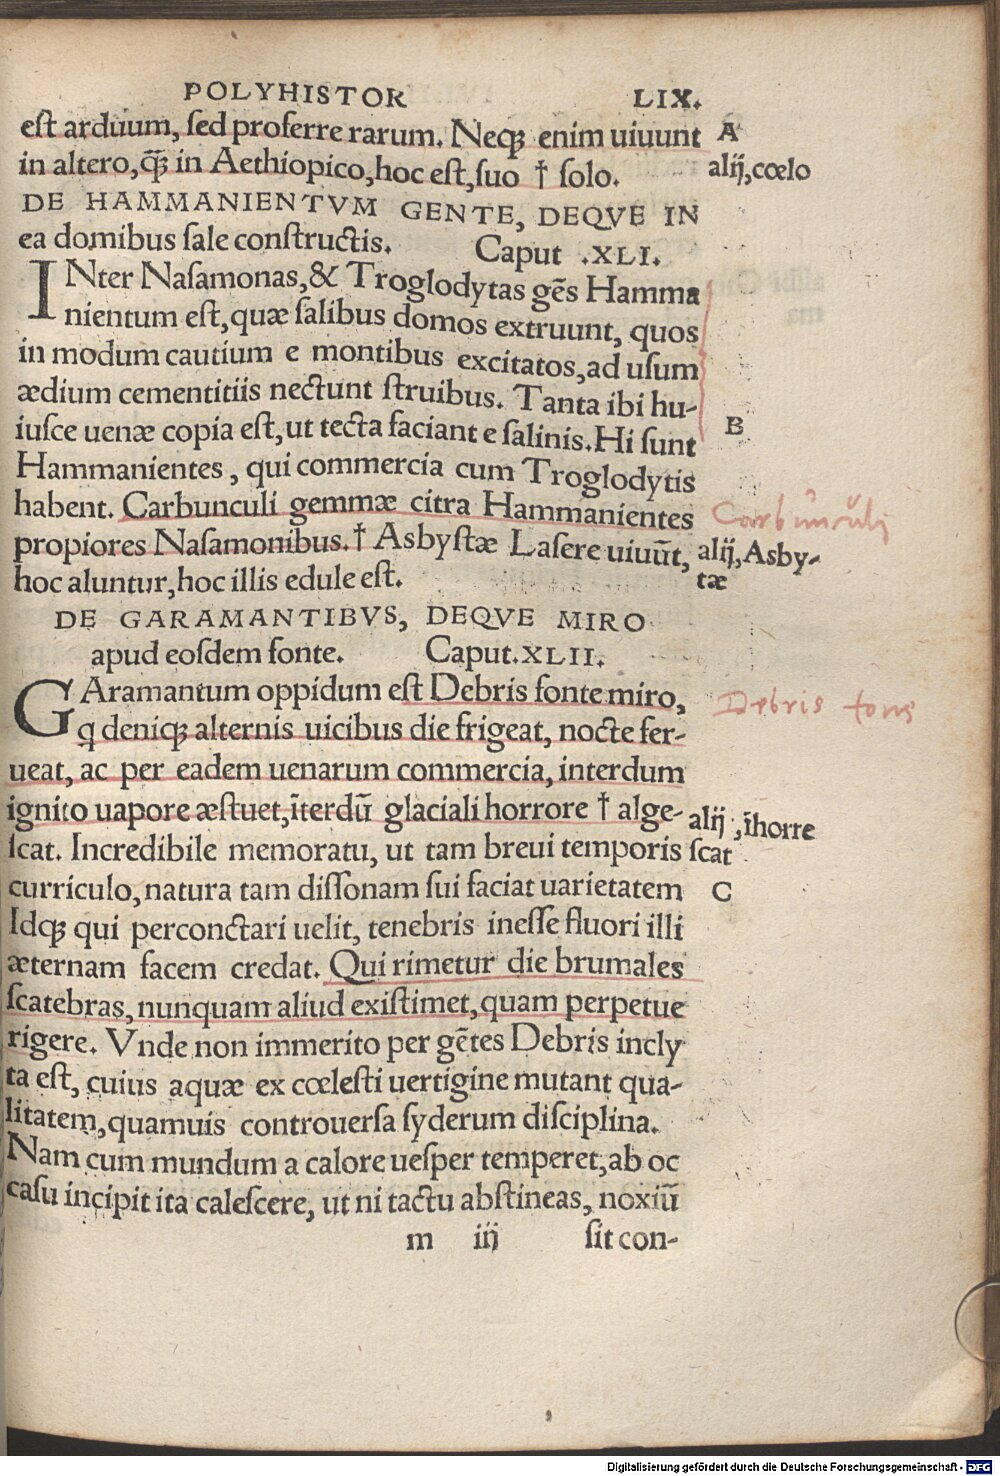 POLYHISTOR LIX.
est arduum, sed proferre rarum. Neqꝫ enim uiuunt A
in altero, q̃ꝫ in Aethiopico, hoc est, suo † solo. alij, cœlo
DE HAMMANIENTVM GENTE, DEQVE IN
ea domibus sale constructis. Caput .XLI.
INter Nasamonas, & Troglodytas gẽs Hamma
nientum est, quæ salibus domos extruunt, quos
in modum cautium e montibus excitatos, ad usum
ædium cementitiis nectunt struibus. Tanta ibi hu-
iusce uenæ copia est, ut tecta faciant e salinis. Hi sunt B
Hammanientes, qui commercia cum Troglodytis
habent. Carbunculi gemmæ citra Hammanientes Carbunculi
propiores Nasamonibus. † Asbystæ Lasere uiuũt, alij, Asby-
hoc aluntur, hoc illis edule est. tæ
DE GARAMANTIBVS, DEQVE MIRO
apud eosdem fonte. Caput. XLII.
GAramantum oppidum est Debris fonte miro, Debris fons
q deniqꝫ alternis uicibus die frigeat, nocte fer-
ueat, ac per eadem uenarum commercia, interdum
ignito uapore æstuet, ĩterdũ glaciali horrore † alge- alij, ĩhorre
scat. Incredibile memoratu, ut tam breui temporis scat
curriculo, natura tam dissonam sui faciat uarietatem C
Idqꝫ qui perconctari uelit, tenebris inesse fluori illi
æternam facem credat. Qui rimetur die brumales
scatebras, nunquam aliud existimet, quam perpetue
rigere. Vnde non immerito per gẽtes Debris incly
ta est, cuius aquæ ex cœlesti uertigine mutant qua-
litatem, quamuis controuersa syderum disciplina.
Nam cum mundum a calore uesper temperet, ab oc
casu incipit ita calescere, ut ni tactu abstineas, noxiũ
m iij sit con-
Digitalisierung gefördert durch die Deutsche Forschungsgemeinschaft - DFG